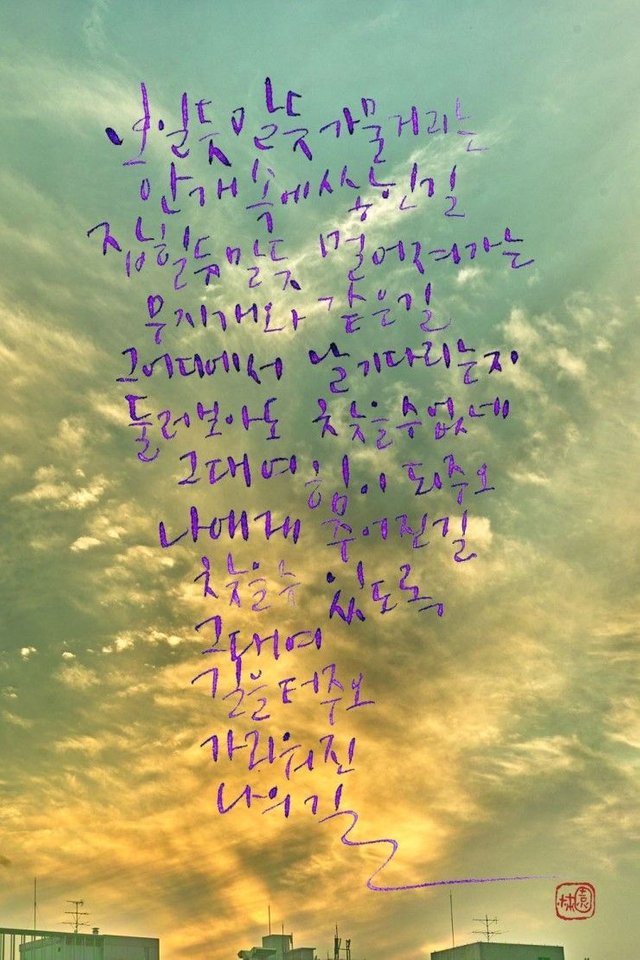 보일듯말듯 가물거리는
안개속에 싸인길
잡힐듯말듯 멀어져가는
무지개와 같은길
그어디에서 날 기다리는지
둘러보아도 찾을수없네
그대여 힘이 되주오
나에게 주어진길
찾을수 있도록
그대여
길을 터주오
가리워진
나의 길